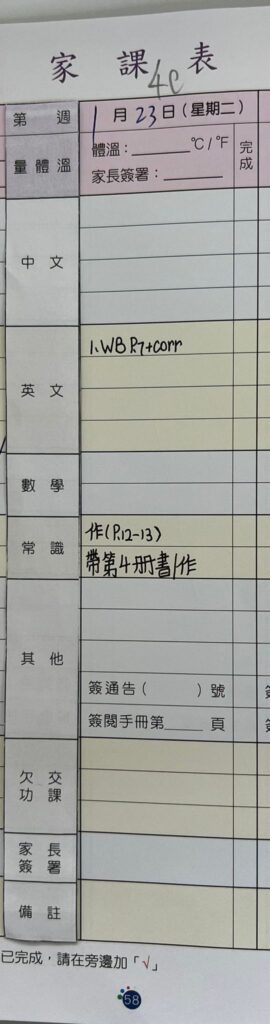 家 課 表
4C
第 週
1月23日(星期二)
量體溫
體溫：______°C/°F
家長簽署：______
完成
中文
英文
1. WB P.7+corr
數學
常識
作(P.12-13)
帶第4册書/作
其他
簽通告( )號
簽閱手冊第____頁
欠交功課
家長簽署
備註
已完成，請在旁邊加「√」
58